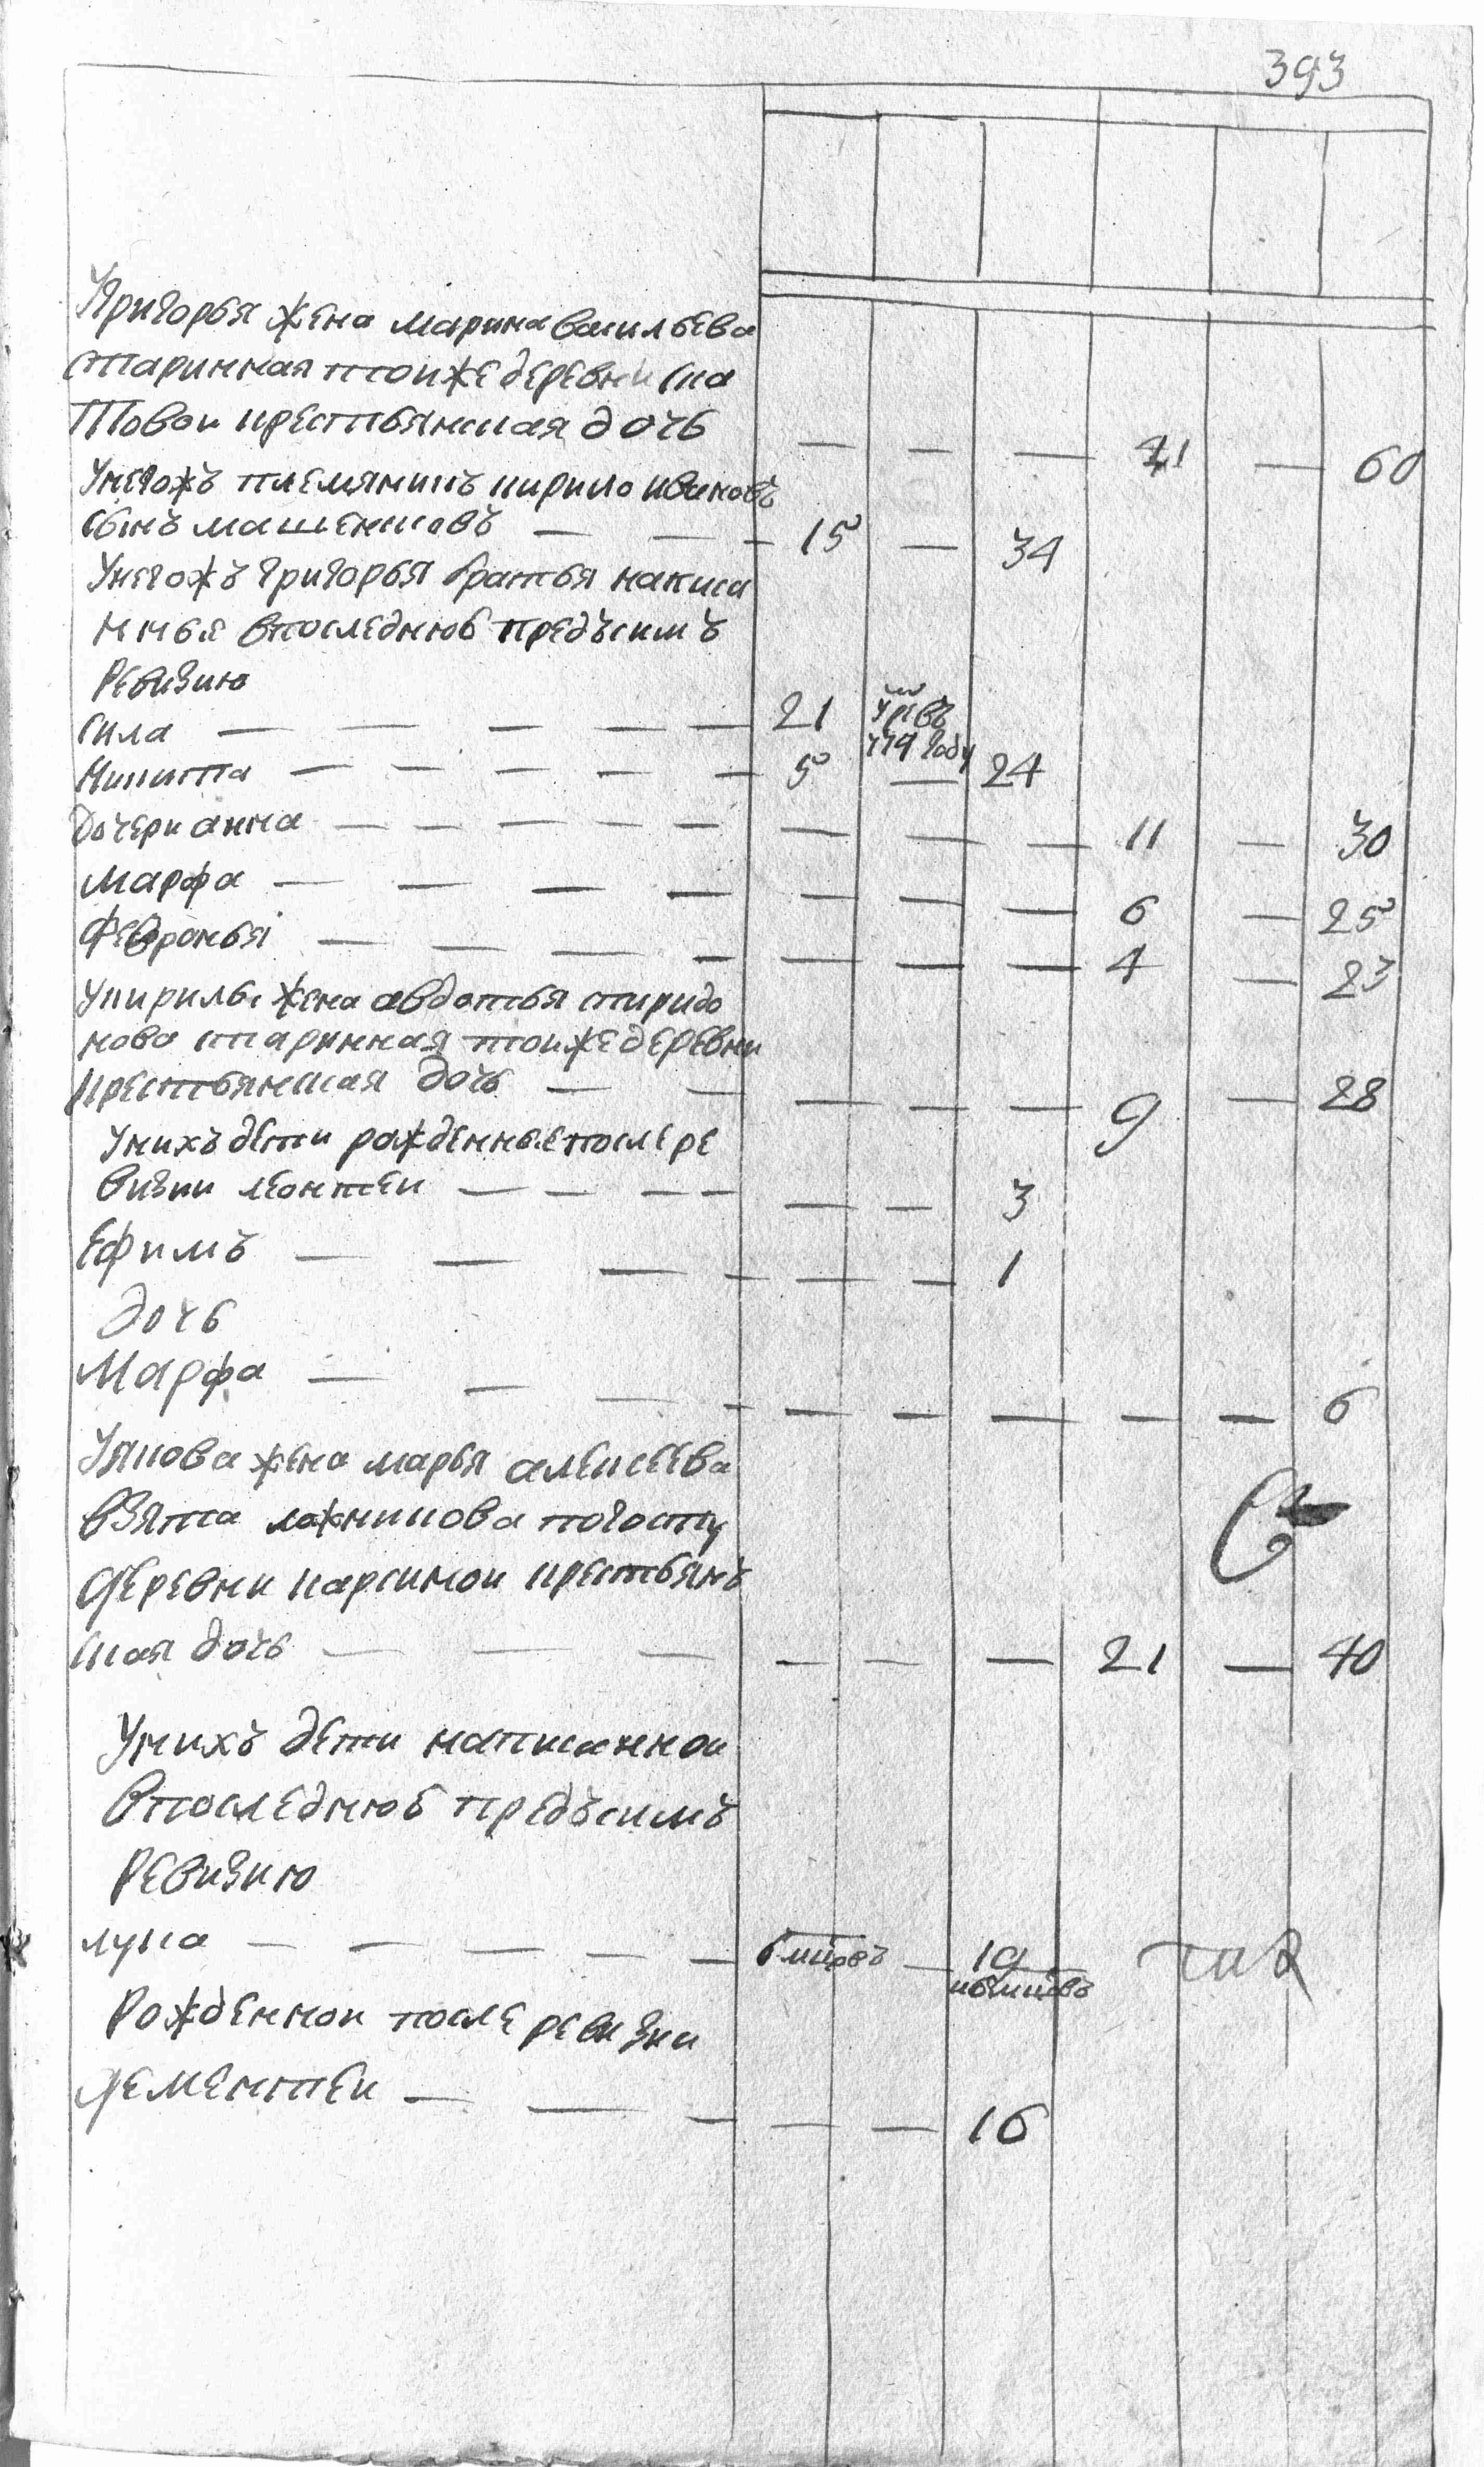 393
У Григорья жена марина васильева
старинная тоиже деревни ска
товои крестьянская дочь — — — 41 — 60
У негожъ племянникъ кирило ивановъ
сынъ машенковъ — — — 15 — 34
У негожъ григорья братья написа
нныя впоследнюю предъсимъ
ревизию
сила — — — — — 21 779 году
Никита — — — — — 5 — 24
Дочери анна — — — — — — — — 11 — 30
Марфа — — — — — — — 6 — 25
Февронья — — — — — — — 4 — 23
У кирилы жена авдотья спиридо
нова старинная тоиже деревни
крестьянская дочь — — — — — 9 — 28
У нихъ дети рожденные после ре
визии леонтеи — — — — — — 3
Ефимъ — — — — — — 1
Дочь
Марфа — — — — — — — — — 6
У якова жена марья алексеева
взята погосту
деревни карсинои крестьянъ
ская дочь — — — — — — 21 — 40
У нихъ дети написаннои
впоследнюю предъсимъ
ревизию
лука — — — — — — 19
Рожденнои после ревизии
Дементеи — — — — — 16